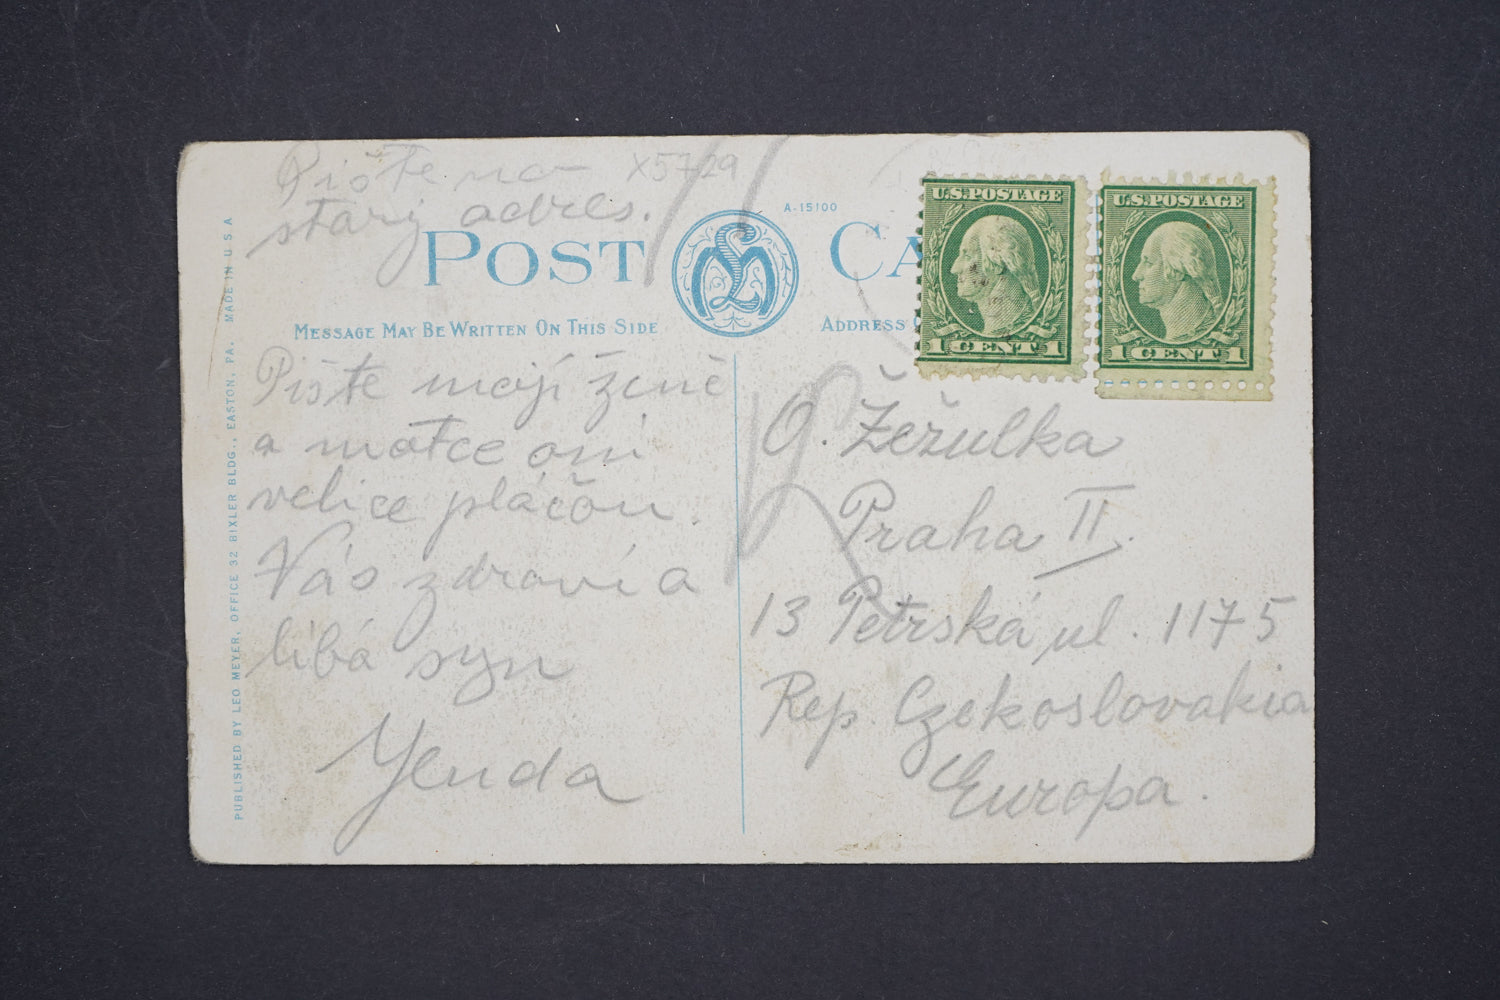 Pište na X5729
starý adres.
A-15100
POST CA
MESSAGE MAY BE WRITTEN ON THIS SIDE
ADDRESS
U.S. POSTAGE
1 CENT 1
U.S. POSTAGE
1 CENT 1
PUBLISHED BY LEO MEYER, OFFICE 32 BIXLER BLDG., EASTON, PA. MADE IN U S A
Pište mojí ženě
a matce oni
velice pláčou.
Vás zdraví a
líbá syn
Yenda
O. Žežulka
Praha II.
13 Petrská ul. 1175
Rep Czekoslovakia
Europa.